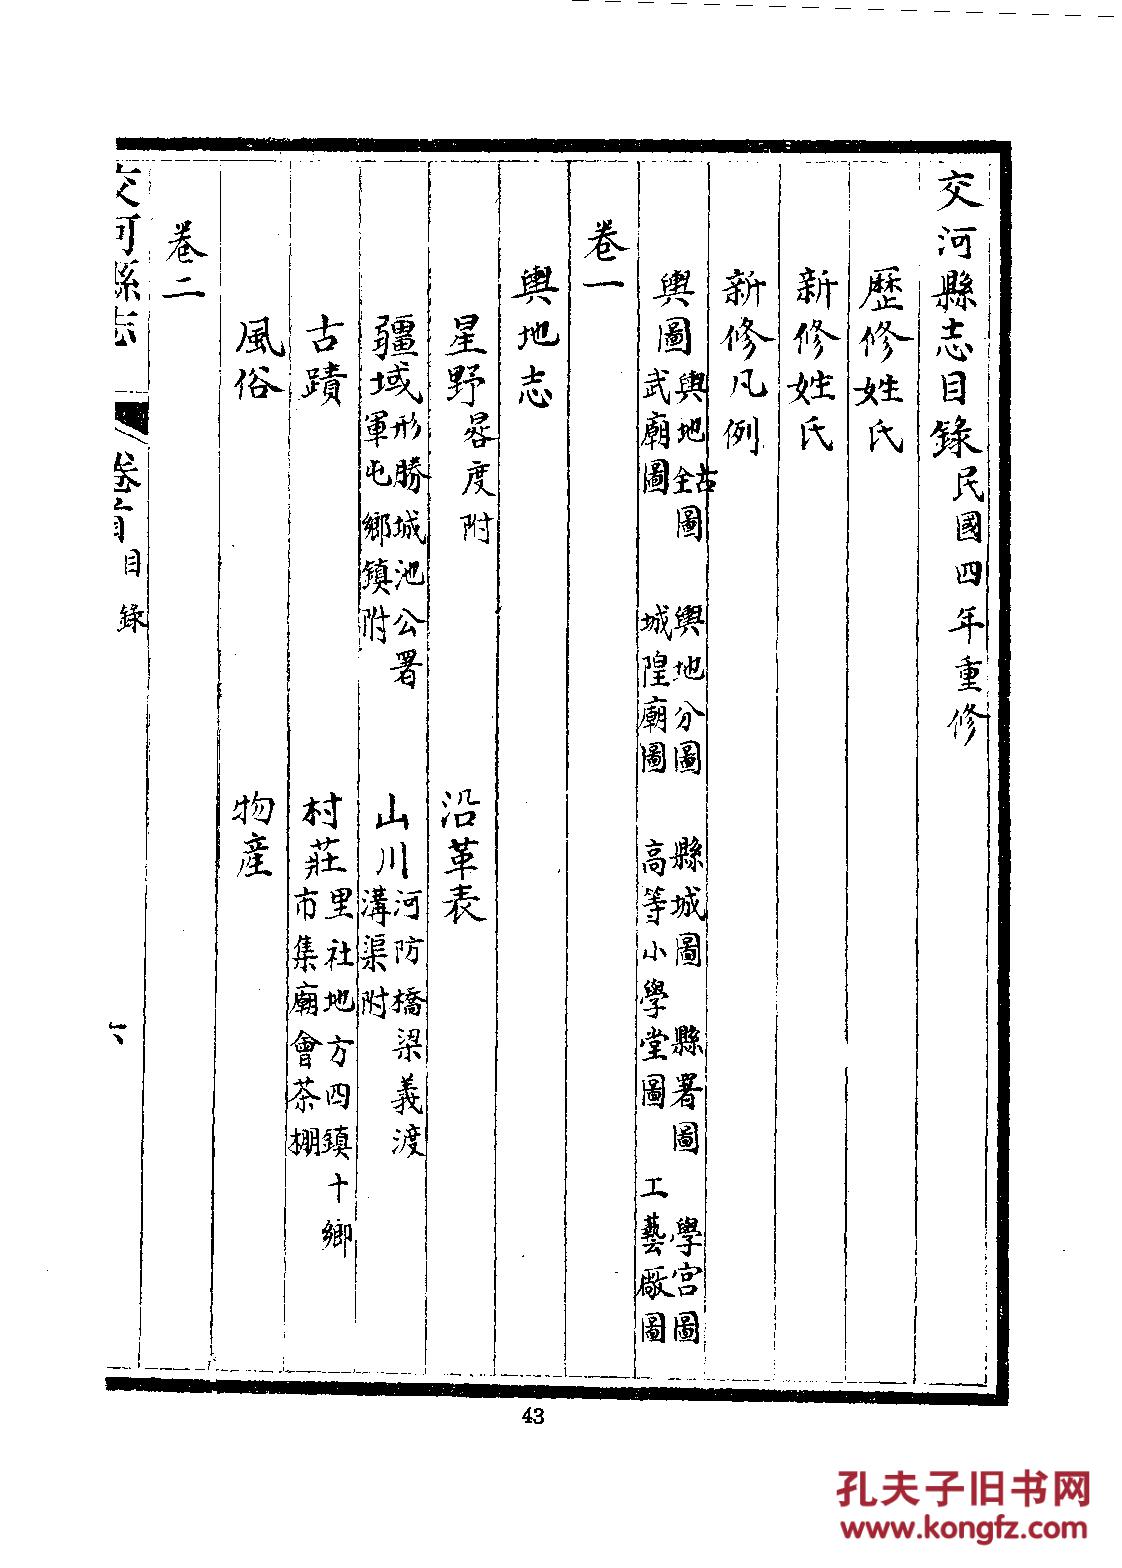 交河縣志目錄 民國四年重修
歷修姓氏
新修姓氏
新修凡例
輿圖 輿地全圖 古 輿地分圖 縣城圖 縣署圖 學宮圖
武廟圖 城隍廟圖 高等小學堂圖 工藝廠圖
卷一
輿地志
星野 晷度附 沿革表
疆域 形勝城池公署 軍屯鄉鎮附 山川 河防橋梁義渡 溝渠附
古蹟 村莊 里社地方四鎮十鄉 市集廟會茶棚
風俗 物產
卷二
交河縣志 卷首 目錄 六
43
孔夫子旧书网
www.kongfz.com